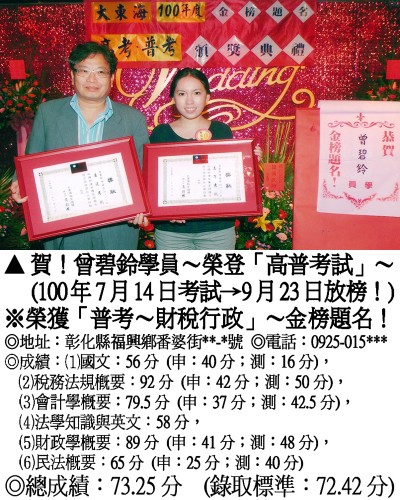 大東海 100年度 金榜題名
高考·普考 頒獎典禮
Wedding
恭賀
曾碧鈴
同學
金榜題名！
▲賀！曾碧鈴學員～榮登「高普考試」～
(100年7月14日考試→9月23日放榜！)
※榮獲「普考～財稅行政」～金榜題名！
◎地址：彰化縣福興鄉番婆街**-*號 ◎電話：0925-015***
◎成績：⑴國文：56分 (申：40分；測：16分)，
⑵稅務法規概要：92分 (申：42分；測：50分)，
⑶會計學概要：79.5分 (申：37分；測：42.5分)，
⑷法學知識與英文：58分，
⑸財政學概要：89分 (申：41分；測：48分)，
⑹民法概要：65分 (申：25分；測：40分)
◎總成績：73.25分 (錄取標準：72.42分)